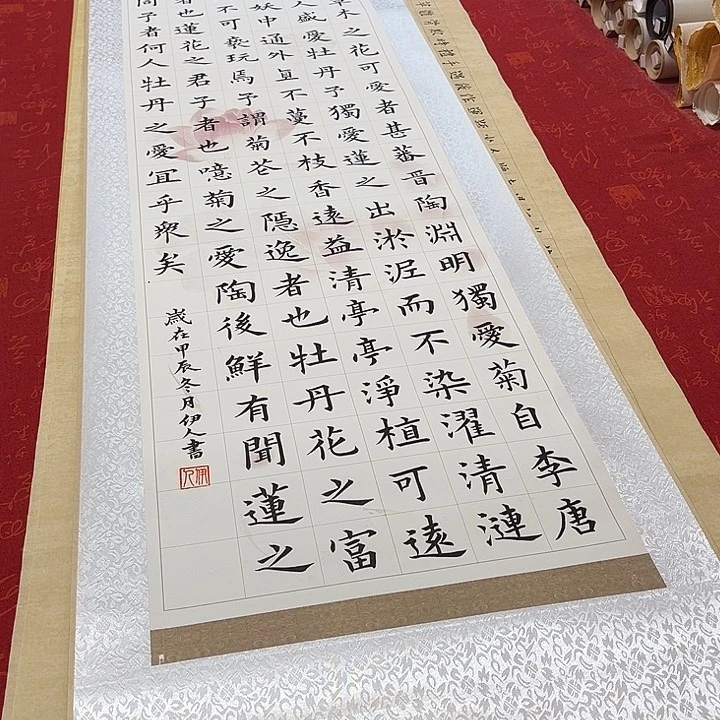 木之花可愛者甚蕃晉陶淵明獨愛菊自李唐
人盛愛牡丹予獨愛蓮之出淤泥而不染濯清漣
妖中通外直不蔓不枝香遠益清亭亭淨植可遠
不可褻玩焉予謂菊花之隱逸者也牡丹花之富
者也蓮花之君子者也噫菊之愛陶後鮮有聞蓮之
同予者何人牡丹之愛宜乎衆矣
歲在甲辰冬月伊人書
伊人